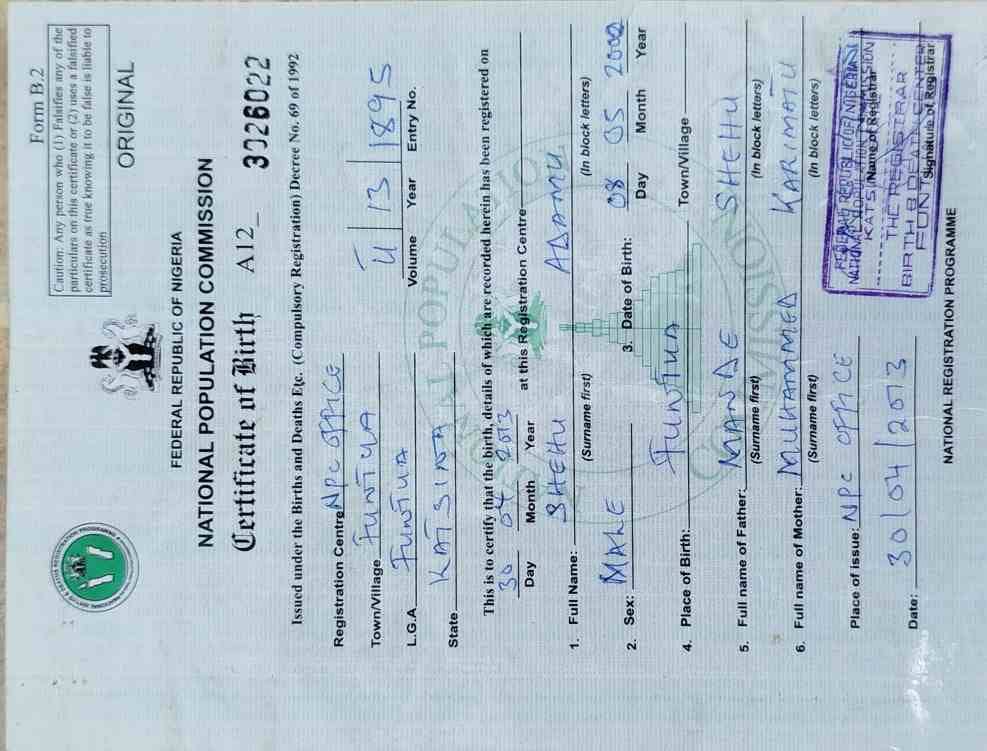 Form B.2
Caution: Any person who (1) Falsifies any of the
particulars on this certificate or (2) uses a falsified
certificate as true knowing it to be false is liable to
prosecution
ORIGINAL
FEDERAL REPUBLIC OF NIGERIA
NATIONAL POPULATION COMMISSION
Certificate of Birth A12 3026022
Issued under the Births and Deaths Etc. (Compulsory Registration) Decree No. 69 of 1992
Registration Centre NPC OFFICE
Town/Village FUNTUA
L.G.A. FUNTUA
State KATSINA
U 13 1895
Volume Year Entry No.
This is to certify that the birth, details of which are recorded herein has been registered on
30 04 2013 at this Registration Centre
Day Month Year
1. Full Name: SHEHU ADAMU
(Surname first) (In block letters)
2. Sex: MALE 3. Date of Birth: 08 05
Day Month Year
4. Place of Birth: FUNTUA Town/Village
5. Full name of Father: MANDE SHEHU
(Surname first) (In block letters)
6. Full name of Mother: MUHAMMED KARIMATU
(Surname first) (In block letters)
Place of issue: NPC OFFICE
Name of Registrar
Date: 30/04/2013
Signature of Registrar
FEDERAL REPUBLIC OF NIGERIA
NATIONAL POPULATION COMMISSION
THE REGISTRAR
BIRTH & DEATH CENTER
FUNTUA
NATIONAL REGISTRATION PROGRAMME